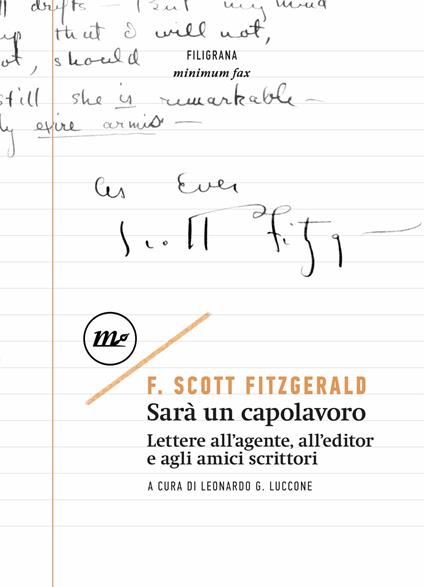 ll drifts — I but my mind
up that I will not,
ot, should
FILIGRANA
minimum fax
still she is remarkable —
ly entre armis —
As Ever
Scott Fitzg
m
F. SCOTT FITZGERALD
Sarà un capolavoro
Lettere all'agente, all'editor
e agli amici scrittori
A CURA DI LEONARDO G. LUCCONE